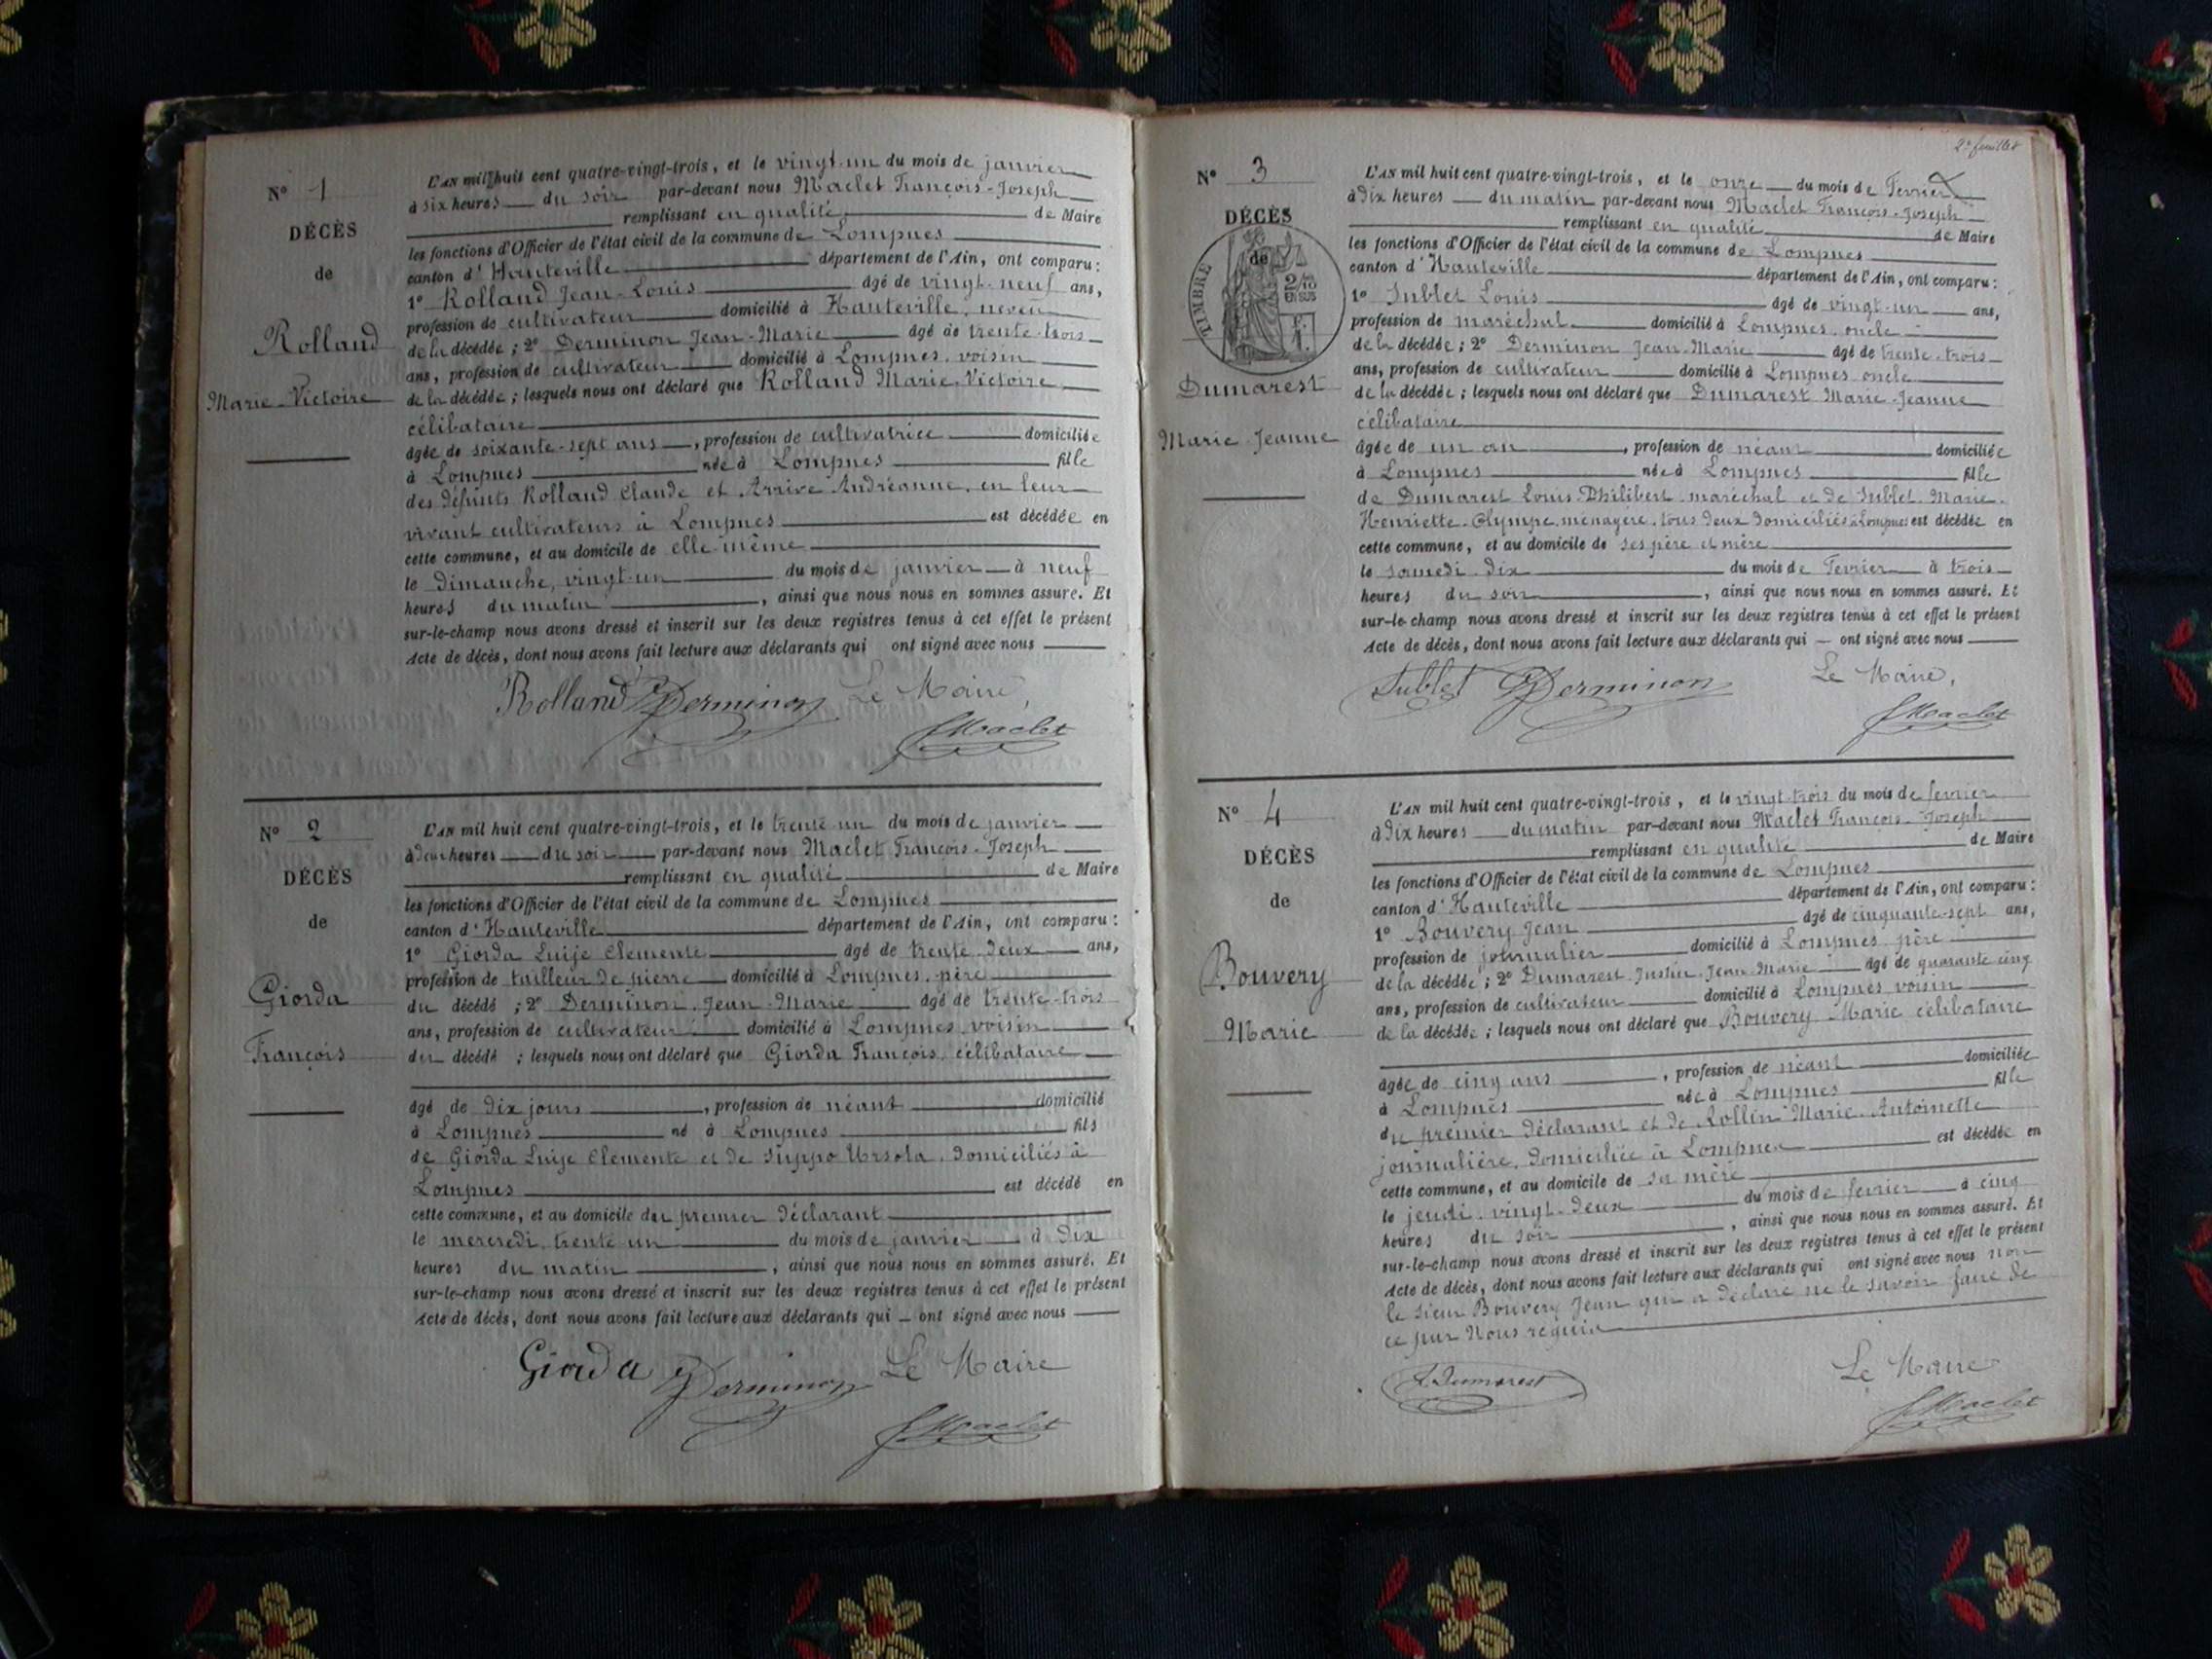 N° 1
DÉCÈS
de
Rolland
Marie-Victoire
L'AN mil huit cent quatre-vingt-trois, et le vingt-un du mois de janvier
à six heures du soir par-devant nous Maclet François-Joseph
remplissant en qualité de Maire
les fonctions d'Officier de l'état civil de la commune de Lompnes
canton d'Hauteville département de l'Ain, ont comparu :
1° Rolland Jean-Louis âgé de vingt-neuf ans,
profession de cultivateur domicilié à Hauteville, neveu
de la décédée ; 2° Derminon Jean-Marie âgé de trente-trois
ans, profession de cultivateur domicilié à Lompnes, voisin
de la décédée ; lesquels nous ont déclaré que Rolland Marie-Victoire
célibataire
âgée de soixante-sept ans, profession de cultivatrice domiciliée
à Lompnes née à Lompnes fille
des défunts Rolland Claude et Arrive Andréanne, en leur
vivant cultivateurs à Lompnes est décédée en
cette commune, et au domicile de elle-même
le dimanche, vingt-un du mois de janvier à neuf
heures du matin, ainsi que nous nous en sommes assuré. Et
sur-le-champ nous avons dressé et inscrit sur les deux registres tenus à cet effet le présent
Acte de décès, dont nous avons fait lecture aux déclarants qui ont signé avec nous
Rolland Derminon Le Maire,
Maclet
N° 2
DÉCÈS
de
Giorda
François
L'AN mil huit cent quatre-vingt-trois, et le trente-un du mois de janvier
à deux heures du soir par-devant nous Maclet François-Joseph
remplissant en qualité de Maire
les fonctions d'Officier de l'état civil de la commune de Lompnes
canton d'Hauteville département de l'Ain, ont comparu :
1° Giorda Luije Clemente âgé de trente-deux ans,
profession de tailleur de pierre domicilié à Lompnes, père
du décédé ; 2° Derminon Jean-Marie âgé de trente-trois
ans, profession de cultivateur domicilié à Lompnes, voisin
du décédé ; lesquels nous ont déclaré que Giorda François, célibataire
âgé de dix jours, profession de néant domicilié
à Lompnes né à Lompnes fils
de Giorda Luije Clemente et de Suppo Ursola, domiciliés à
Lompnes est décédé en
cette commune, et au domicile du premier déclarant
le mercredi, trente-un du mois de janvier à dix
heures du matin, ainsi que nous nous en sommes assuré. Et
sur-le-champ nous avons dressé et inscrit sur les deux registres tenus à cet effet le présent
Acte de décès, dont nous avons fait lecture aux déclarants qui ont signé avec nous
Giorda Derminon Le Maire
Maclet
2e feuillet
N° 3
DÉCÈS
de
TIMBRE
2/10
EN SUS
Dumarest
Marie Jeanne
L'AN mil huit cent quatre-vingt-trois, et le onze du mois de Février
à dix heures du matin par-devant nous Maclet François-Joseph
remplissant en qualité de Maire
les fonctions d'Officier de l'état civil de la commune de Lompnes
canton d'Hauteville département de l'Ain, ont comparu :
1° Sublet Louis âgé de vingt-un ans,
profession de maréchal domicilié à Lompnes, oncle
de la décédée ; 2° Derminon Jean-Marie âgé de trente-trois
ans, profession de cultivateur domicilié à Lompnes oncle
de la décédée ; lesquels nous ont déclaré que Dumarest Marie-Jeanne
célibataire
âgée de un an, profession de néant domiciliée
à Lompnes née à Lompnes fille
de Dumarest Louis-Philibert, maréchal et de Sublet Marie-
Henriette-Olympe, ménagère, tous deux domiciliés à Lompnes est décédée en
cette commune, et au domicile de ses père et mère
le samedi dix du mois de Février à trois
heures du soir, ainsi que nous nous en sommes assuré. Et
sur-le-champ nous avons dressé et inscrit sur les deux registres tenus à cet effet le présent
Acte de décès, dont nous avons fait lecture aux déclarants qui ont signé avec nous
Sublet Derminon Le Maire,
Maclet
N° 4
DÉCÈS
de
Bouvery
Marie
L'AN mil huit cent quatre-vingt-trois, et le vingt-trois du mois de février
à dix heures du matin par-devant nous Maclet François-Joseph
remplissant en qualité de Maire
les fonctions d'Officier de l'état civil de la commune de Lompnes
canton d'Hauteville département de l'Ain, ont comparu :
1° Bouvery Jean âgé de cinquante-sept ans,
profession de journalier domicilié à Lompnes père
de la décédée ; 2° Dumarest Justin Jean-Marie âgé de quarante cinq
ans, profession de cultivateur domicilié à Lompnes voisin
de la décédée ; lesquels nous ont déclaré que Bouvery Marie célibataire
âgée de cinq ans, profession de néant domiciliée
à Lompnes née à Lompnes fille
du premier déclarant et de Rollin Marie-Antoinette
journalière, domiciliée à Lompnes est décédée en
cette commune, et au domicile de sa mère
le jeudi, vingt-deux du mois de février à cinq
heures du soir, ainsi que nous nous en sommes assuré. Et
sur-le-champ nous avons dressé et inscrit sur les deux registres tenus à cet effet le présent
Acte de décès, dont nous avons fait lecture aux déclarants qui ont signé avec nous non
le sieur Bouvery Jean qui a déclaré ne le savoir faire de
ce par Nous requis
Dumarest Le Maire
Maclet